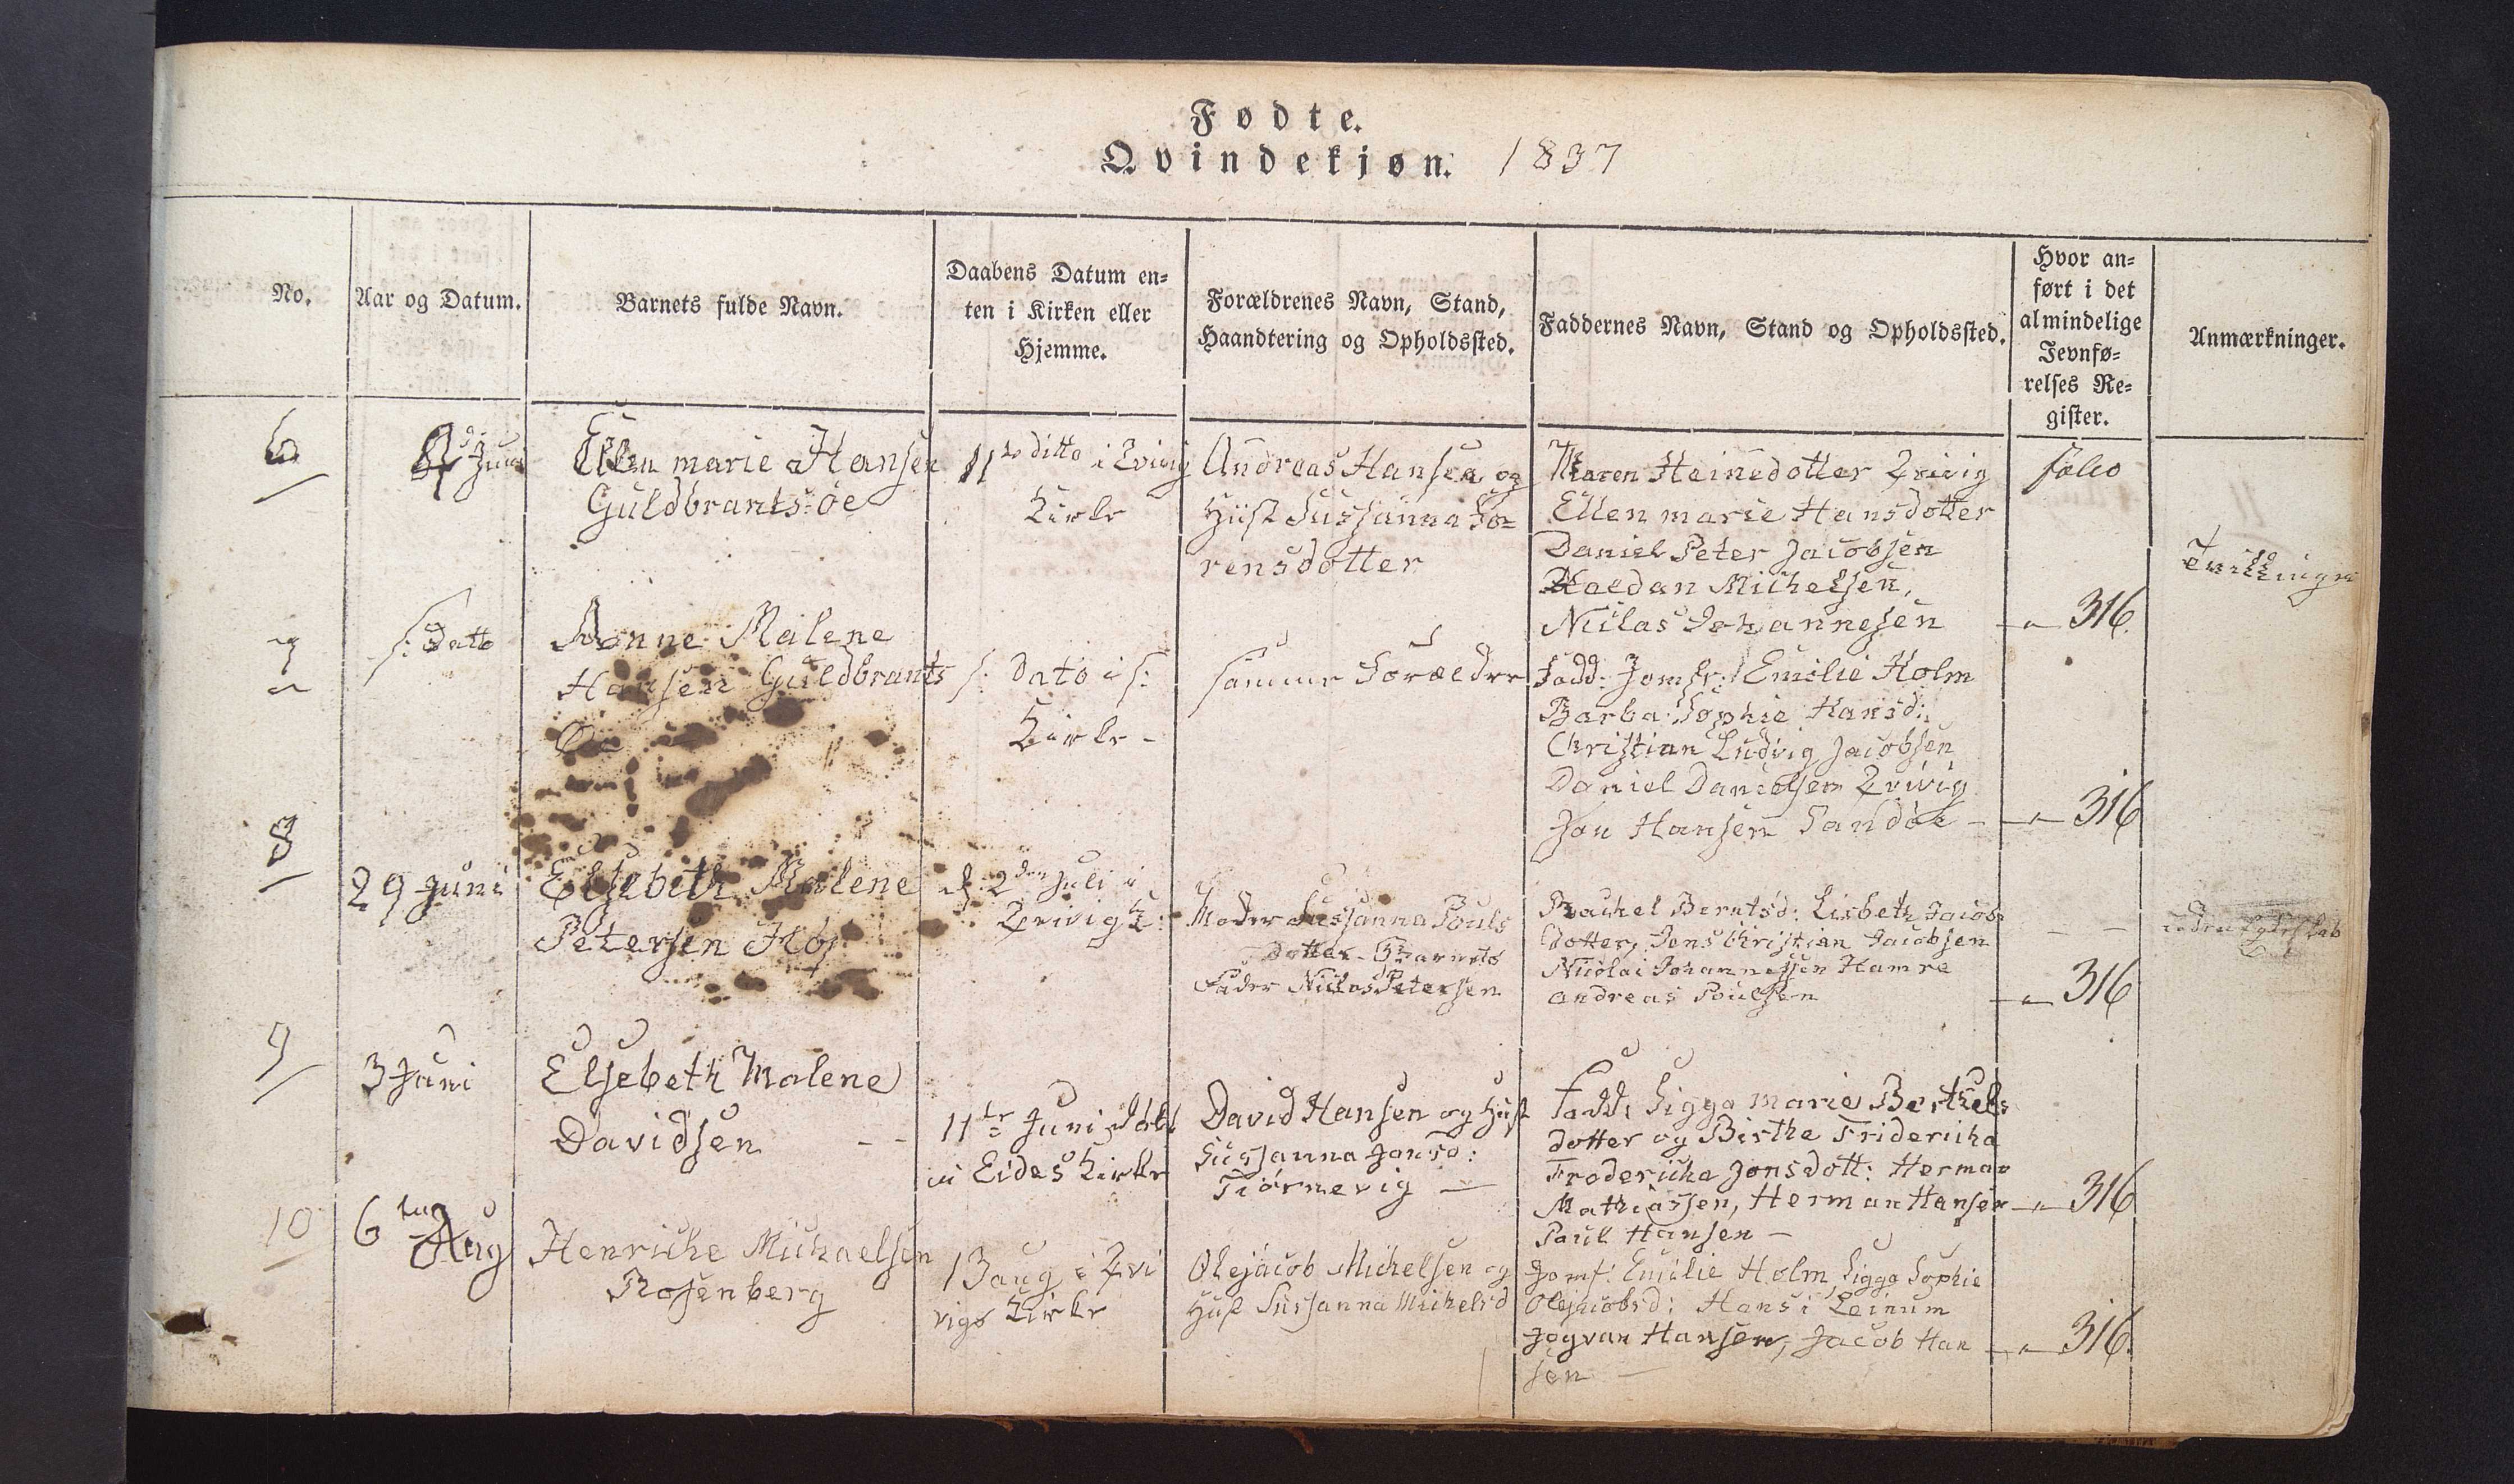 Fødte.
Qvindekjøn. 1837
No.
Aar og Datum.
Barnets fulde Navn.
Daabens Datum en=
ten i Kirken eller
Hjemme.
Forældrenes Navn, Stand,
Haandtering og Opholdssted.
Faddernes Navn, Stand og Opholdssted.
Hvor an=
ført i det
almindelige
Jevnfø=
relses Re=
gister.
Anmærkninger.
6
Juni
Ellen marie Hansen
Guldbrants:øe
11te ditto i Qvivig
Kirke
Andreas Hansen og
Hust Sussanna So=
rensdotter
Maren Heinedotter Qvivig
Ellen marie Hansdotter
Daniel Peter Jacobsen
Hoedan Michelsen,
Niclas Johannesen
folio
316.
Tvillinger
7
s: Datto
Anne Malene
Hansen Guldbrants
Øe
s: Dato i s:
Kirke -
samme Forældre
Fadd: Jomfr: Emilie Holm
Barba Sophie Hansd:
Christian Ludvig Jacobsen
Daniel Danielsen Qvivig
Jon Hansen Sandøe -
316
8
29 Juni
Elsebeth Malene
Petersen
d: 2den Juli i
Qvivig K:
Moder Sussanna Pouls
dotter - Barnets
Fader Niclas Petersen
Rachel Berntsd: Lisbeth Jacobs
dotter, Jens Christian Jacobsen
Nicolai Johannessen Hamre
andreas Poulsen
316
9
3 Juni
Elsebeth Malene
Davidsen - -
11te Juni
i Eides Kirke
David Hansen og Hust
Sussanna Jonsd:
Tiørnevig -
Fadd: Sigga marie Berthels
dotter og Birthe Fridericha
Frodericha Jonsdott: Herman
Mathiassen, Herman Hansen
Poul Hansen -
316
10
6te Aug
Henriche Michaelsen
Rosenberg
13 aug i Qvi
vigs Kirke
Olejacob Michelsen og
Hust Sussanna Michelsd
Jomf: Emilie Holm, Sigga Sophie
Olejacobsd: Hans i Leinum
Jogvan Hansen, Jacob Han
sen -
316.